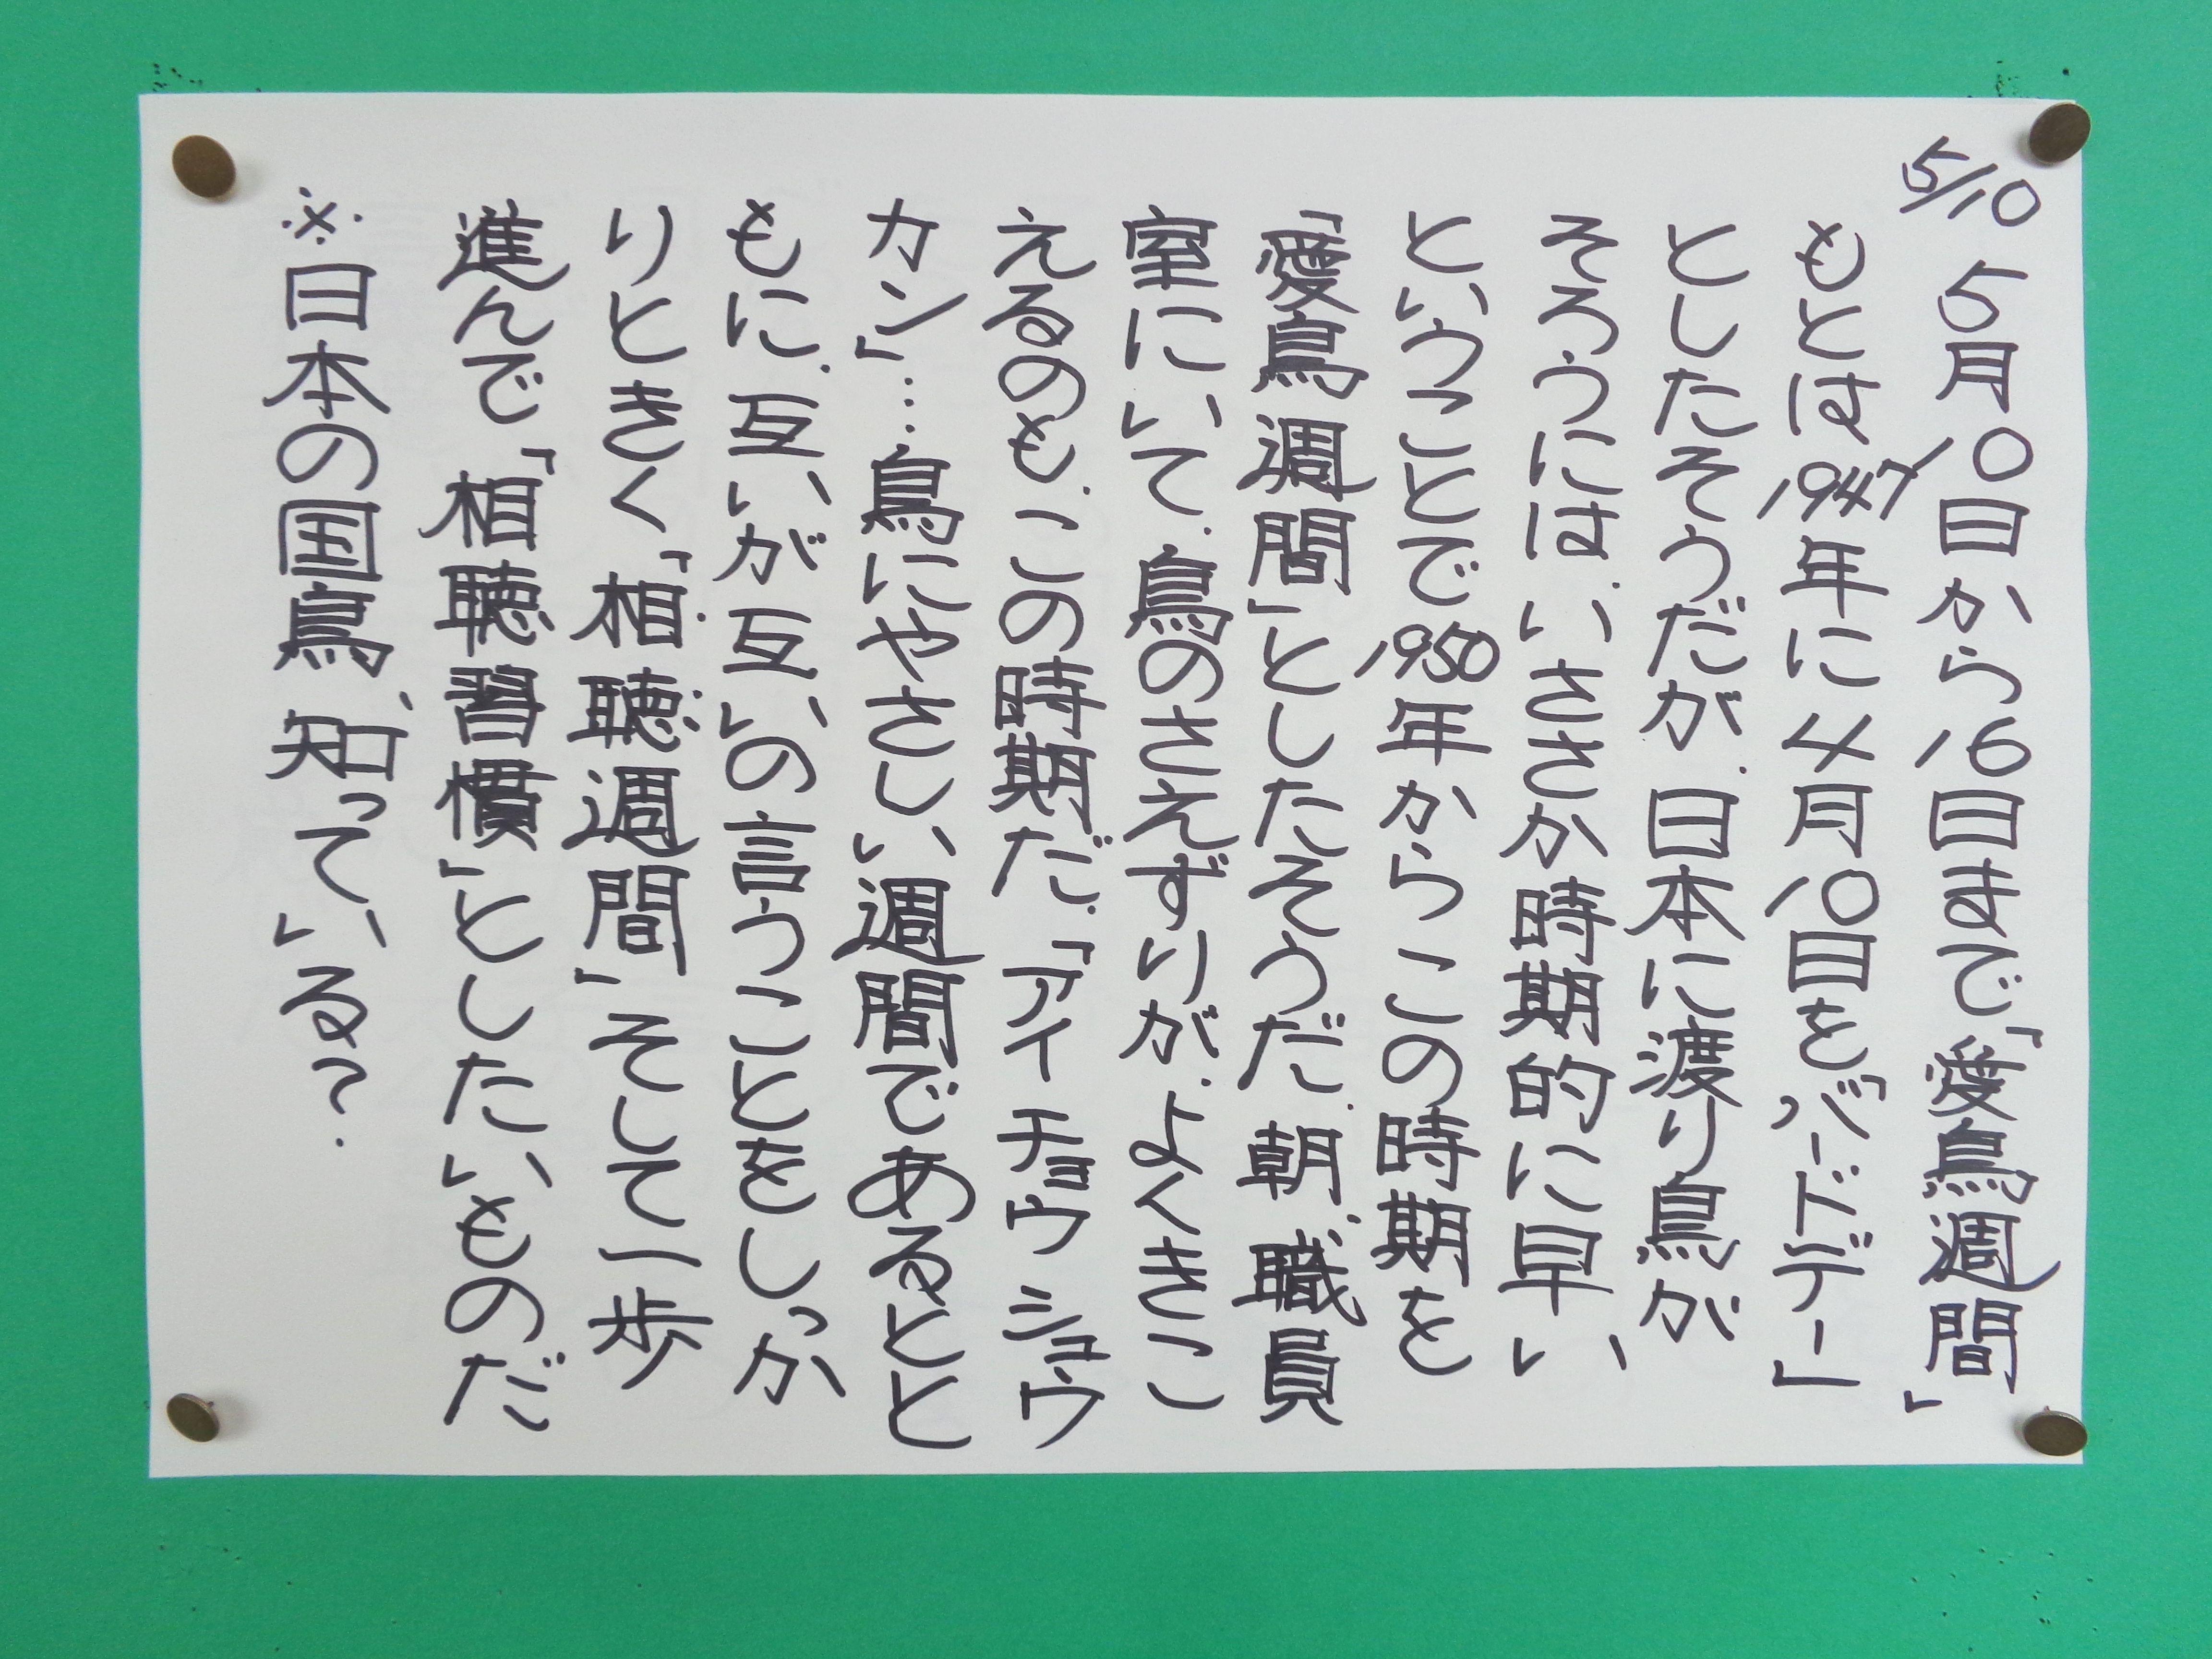 5/10
5月10日から16日まで「愛鳥週間」
もとは1947年に4月10日を「バードデー」
としたそうだが、日本に渡り鳥が
そろうには、いささか時期的に早い
ということで1950年からこの時期を
「愛鳥週間」としたそうだ。朝、職員
室にいて、鳥のさえずりが、よくきこ
えるのも、この時期だ。「アイチョウシュウ
カン」…鳥にやさしい週間であるとと
もに、互いが互いの言うことをしっか
りときく「相聴週間」そして一歩
進んで「相聴習慣」としたいものだ
※日本の国鳥、知っている?